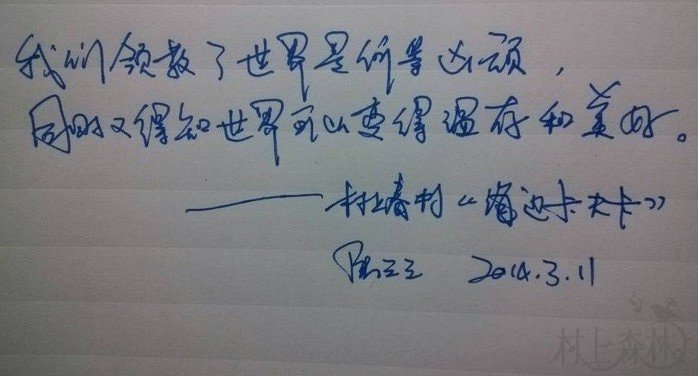 我们领教了世界是何等凶顽，
同时又得知世界可以变得温存和美好。
——村上春树《海边卡夫卡》
2014.3.11
村上森林